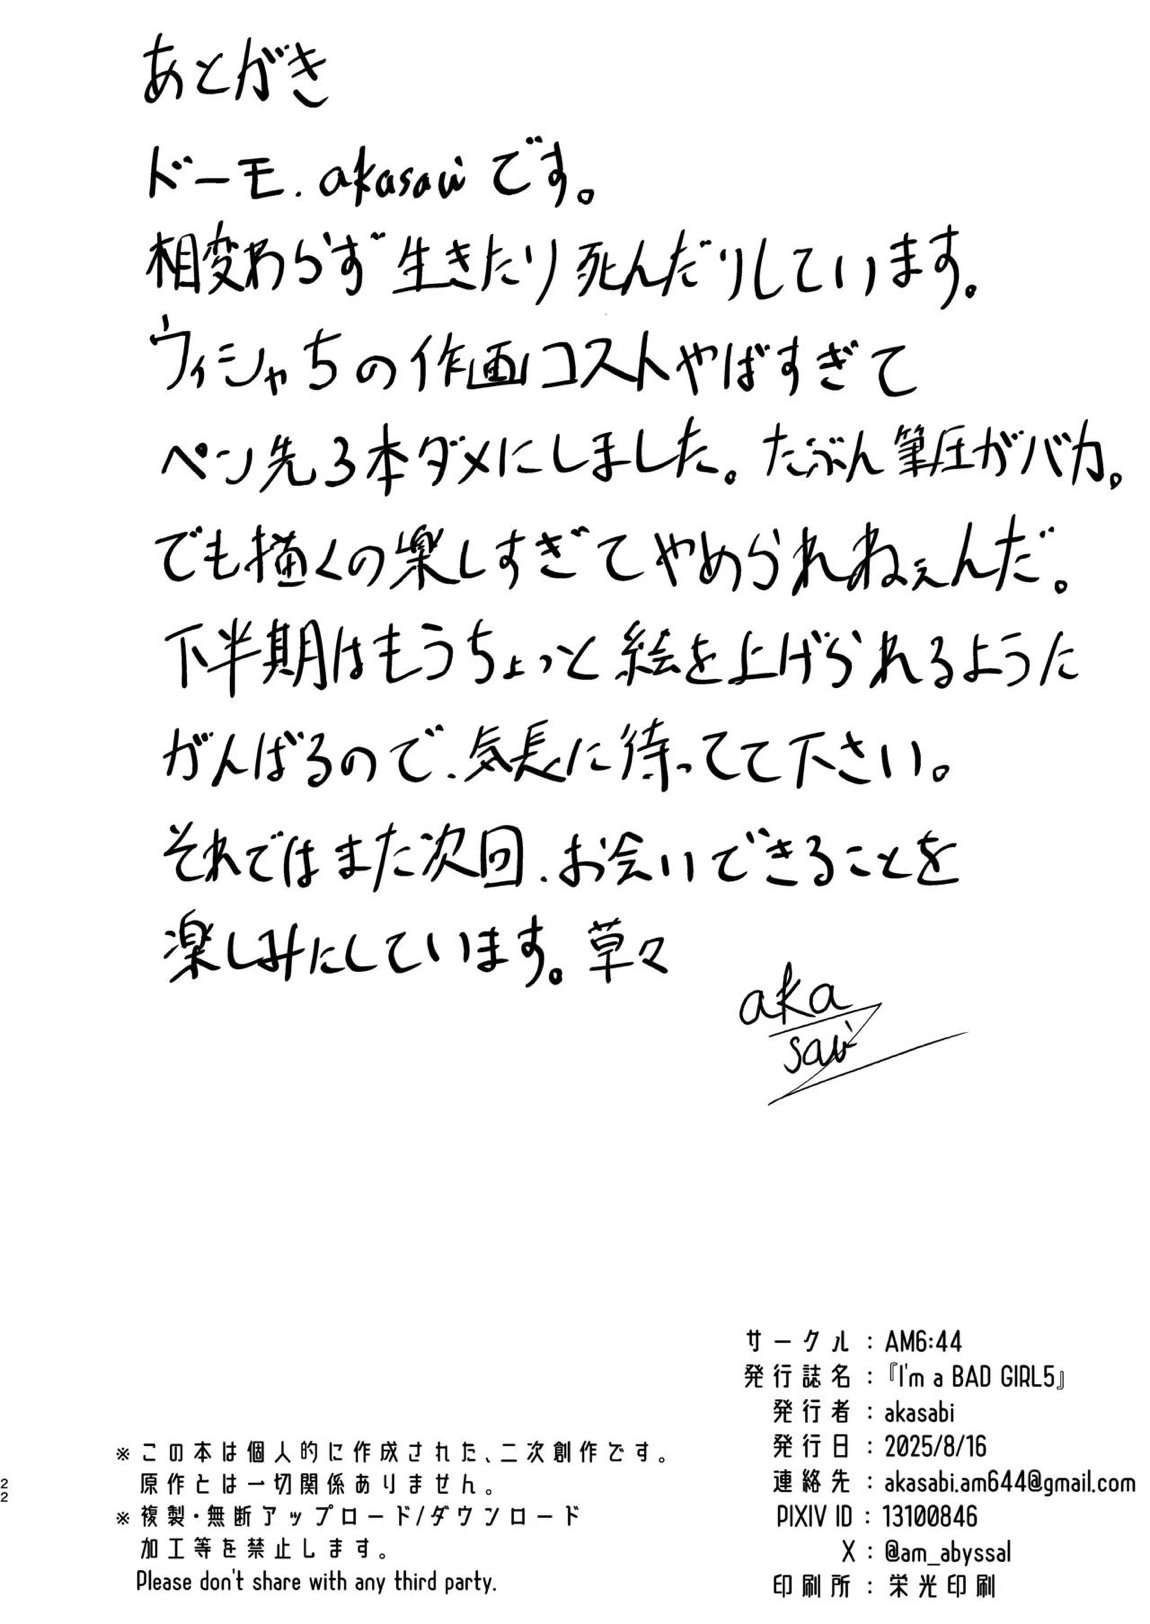 あとがき
ドーモ. akasabiです。
相変わらず生きたり死んだりしています。
ウィシャちの作画コストやばすぎて
ペン先3本ダメにしました。たぶん筆圧がバカ。
でも描くの楽しすぎてやめられねぇんだ。
下半期はもうちょっと絵を上げられるように
がんばるので、気長に待ってて下さい。
それではまた次回、お会いできることを
楽しみにしています。草々
aka
sabi
サークル：AM6:44
発行誌名：『I'm a BAD GIRL5』
発行者：akasabi
発行日：2025/8/16
連絡先：akasabi.am644@gmail.com
PIXIV ID：13100846
X：@am_abyssal
印刷所：栄光印刷
※この本は個人的に作成された、二次創作です。
原作とは一切関係ありません。
※複製・無断アップロード/ダウンロード
加工等を禁止します。
Please don't share with any third party.
22